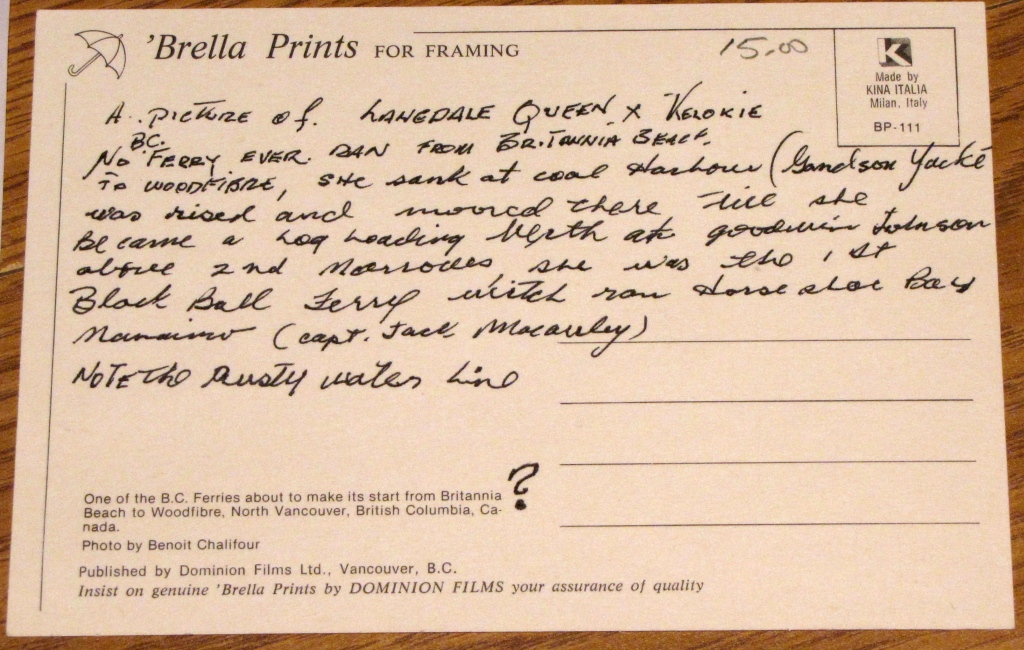 'Brella Prints FOR FRAMING
15.00
Made by
KINA ITALIA
Milan, Italy
BP-111
A. PICTURE of. LANGDALE QUEEN X KELOKIE
B.C.
No FERRY EVER RAN FROM BRITANNIA BEACH.
TO WOODFIBRE, SHE sank at coal Harbour (Gandson Yacke
was rised and moored there Till she
Became a Log Loading Berth at goodwin Johnson
above 2nd Narrodes, she was the 1st
Black Ball Ferry witch ran Horse shoe Bay
Nanaimo (capt. Jack Macauley)
NOTE The Rusty water Line
?
One of the B.C. Ferries about to make its start from Britannia
Beach to Woodfibre, North Vancouver, British Columbia, Ca-
nada.
Photo by Benoit Chalifour
Published by Dominion Films Ltd., Vancouver, B.C.
Insist on genuine 'Brella Prints by DOMINION FILMS your assurance of quality